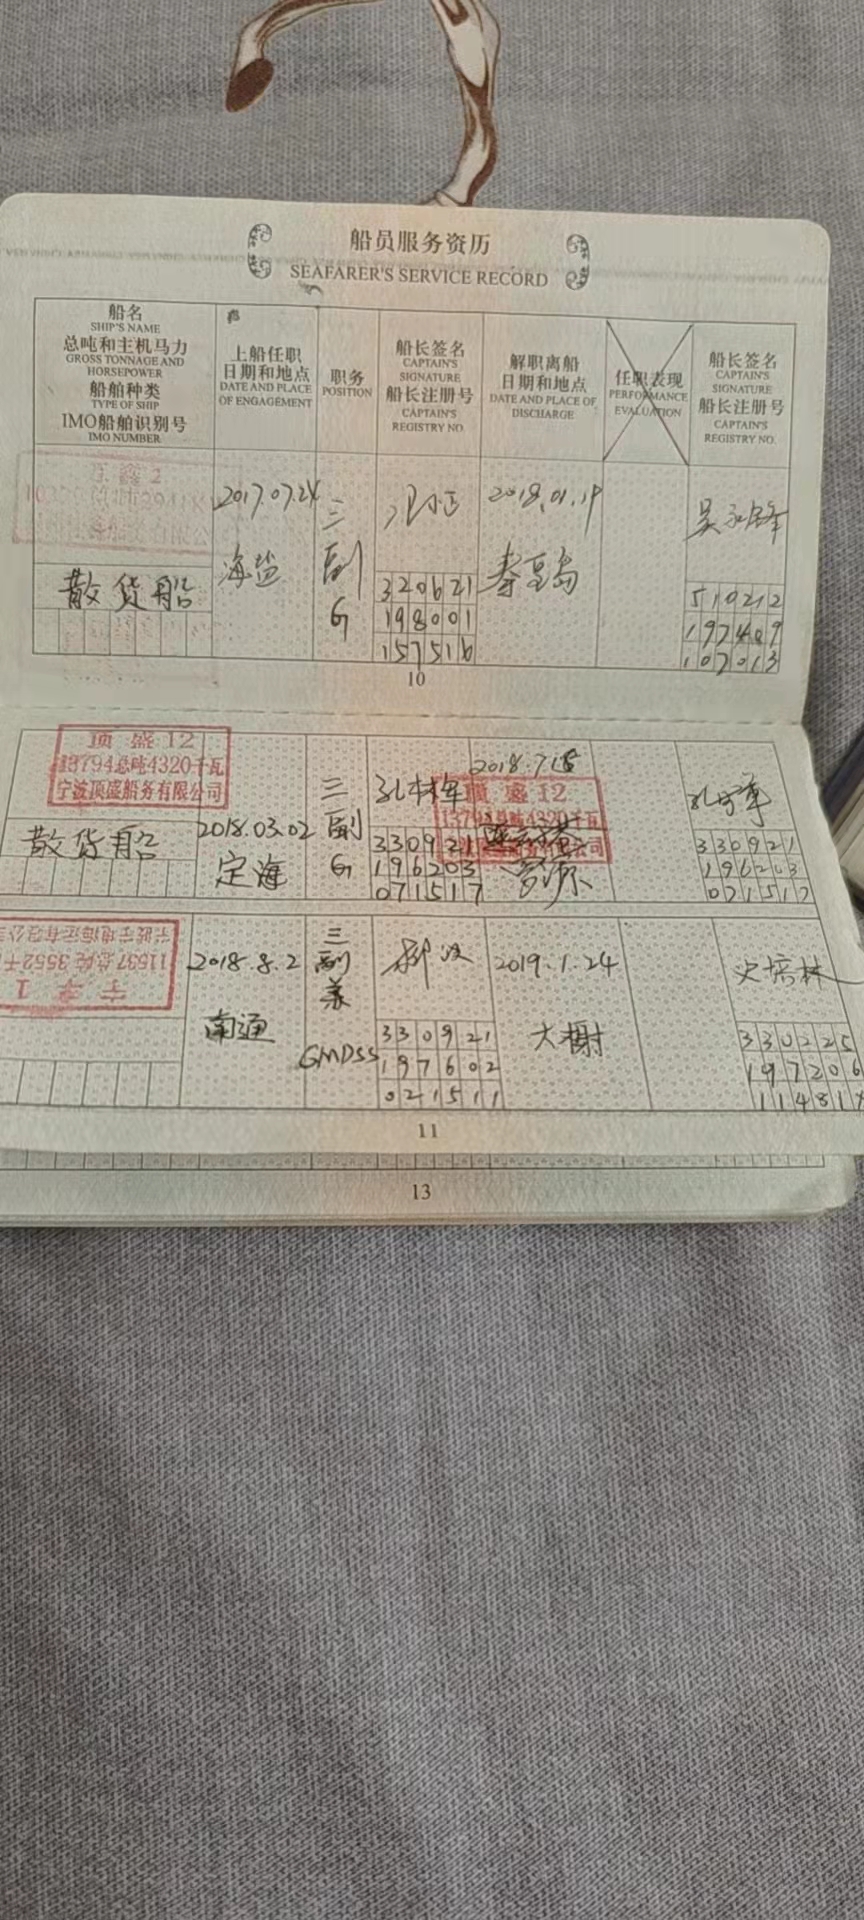 船员服务资历
SEAFARER'S SERVICE RECORD
船名
SHIP'S NAME
总吨和主机马力
GROSS TONNAGE AND
HORSEPOWER
船舶种类
TYPE OF SHIP
IMO船舶识别号
IMO NUMBER
上船任职
日期和地点
DATE AND PLACE
OF ENGAGEMENT
职务
POSITION
船长签名
CAPTAIN'S
SIGNATURE
船长注册号
CAPTAIN'S
REGISTRY NO.
解职离船
日期和地点
DATE AND PLACE OF
DISCHARGE
任职表现
PERFORMANCE
EVALUATION
船长签名
CAPTAIN'S
SIGNATURE
船长注册号
CAPTAIN'S
REGISTRY NO.
鑫 2
散货船
2017.07.24
海盐
三
副
G
320621
198001
157516
2018.01.19
秦皇岛
510212
197409
107013
10
顶盛12
13794总吨4320千瓦
宁波顶盛船务有限公司
散货船
2018.03.02
定海
三
副
G
孔林军
330921
196203
071517
顶盛12
13794总吨4320千瓦
罗源
330921
196203
071517
11537总吨 3552千
1
2018.8.2
南通
三
副
兼
GMDSS
330921
197602
021511
2019.1.24
大榭
史培林
330225
197206
11481
11
13